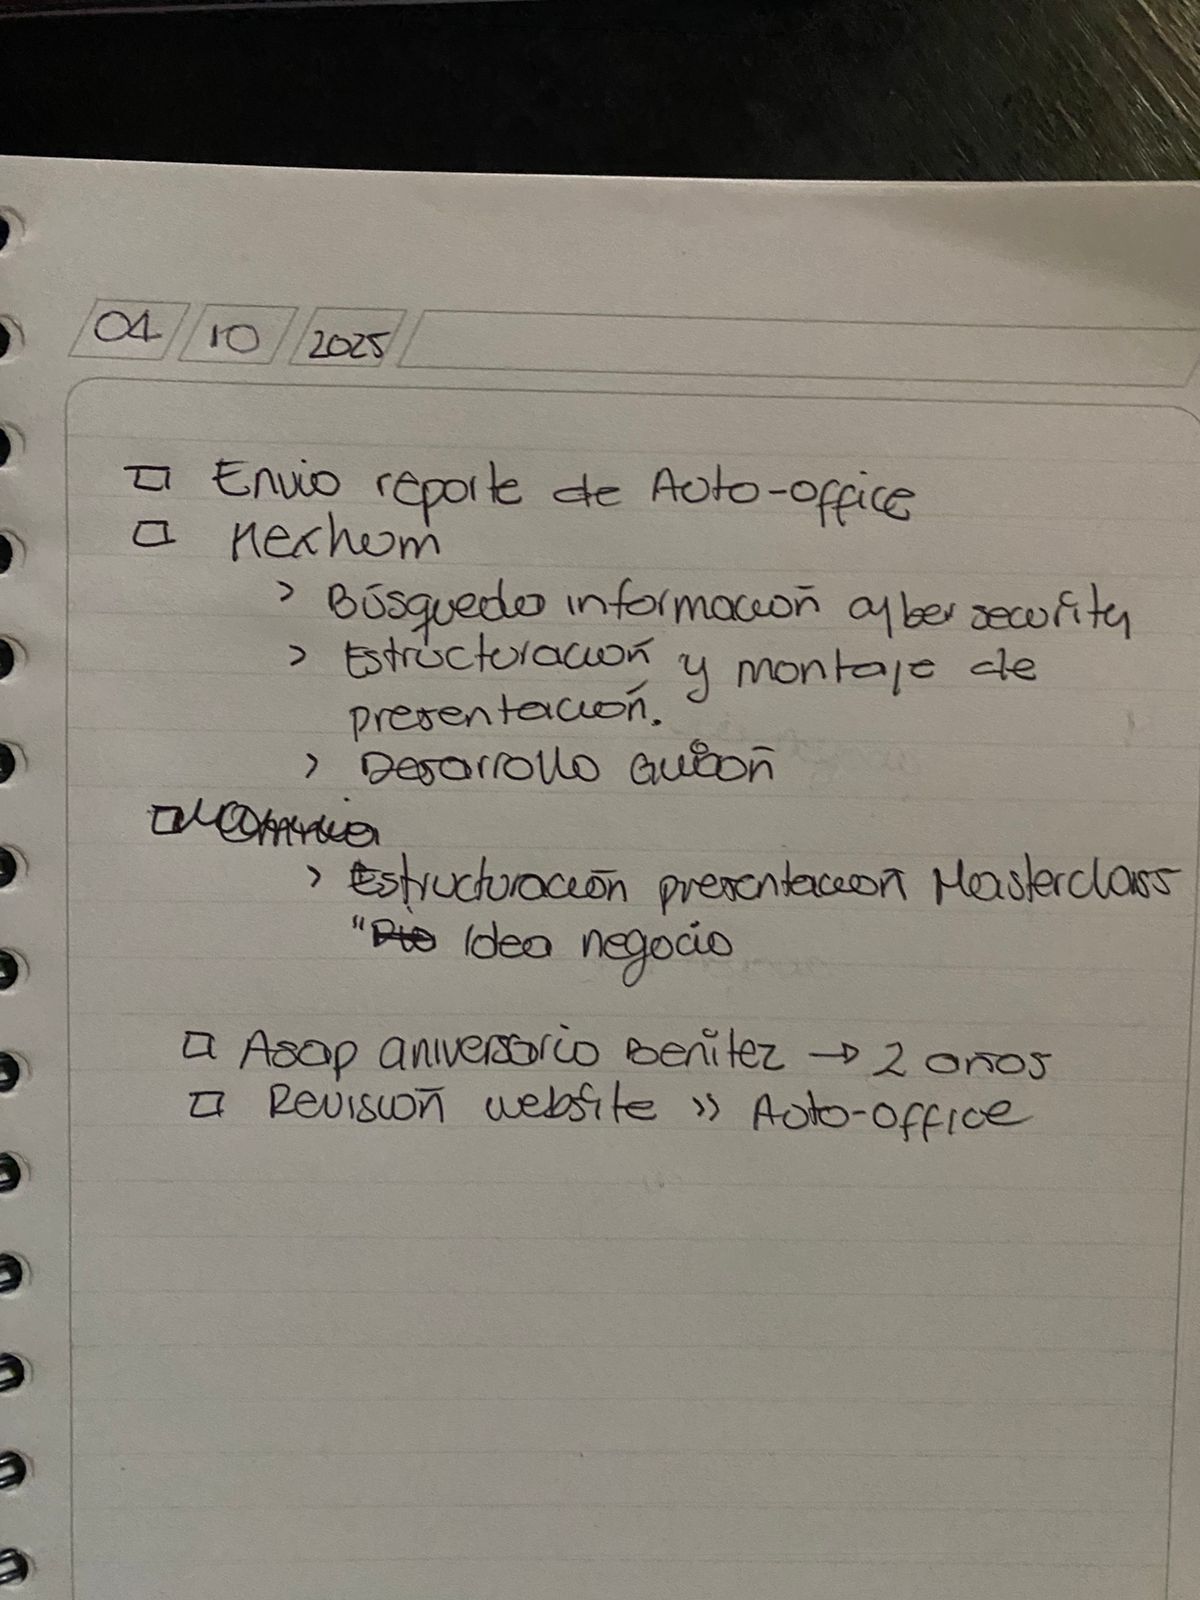 04 10 2025
Envio reporte de Auto-office
> Búsqueda información cybersecurity
> Estructuración y montaje de
presentación.
> Desarrollo guión
> Estructuración presentación Masterclass
" Idea negocio
Asap aniversario Benitez → 2 años
Revisión website >> Auto-office